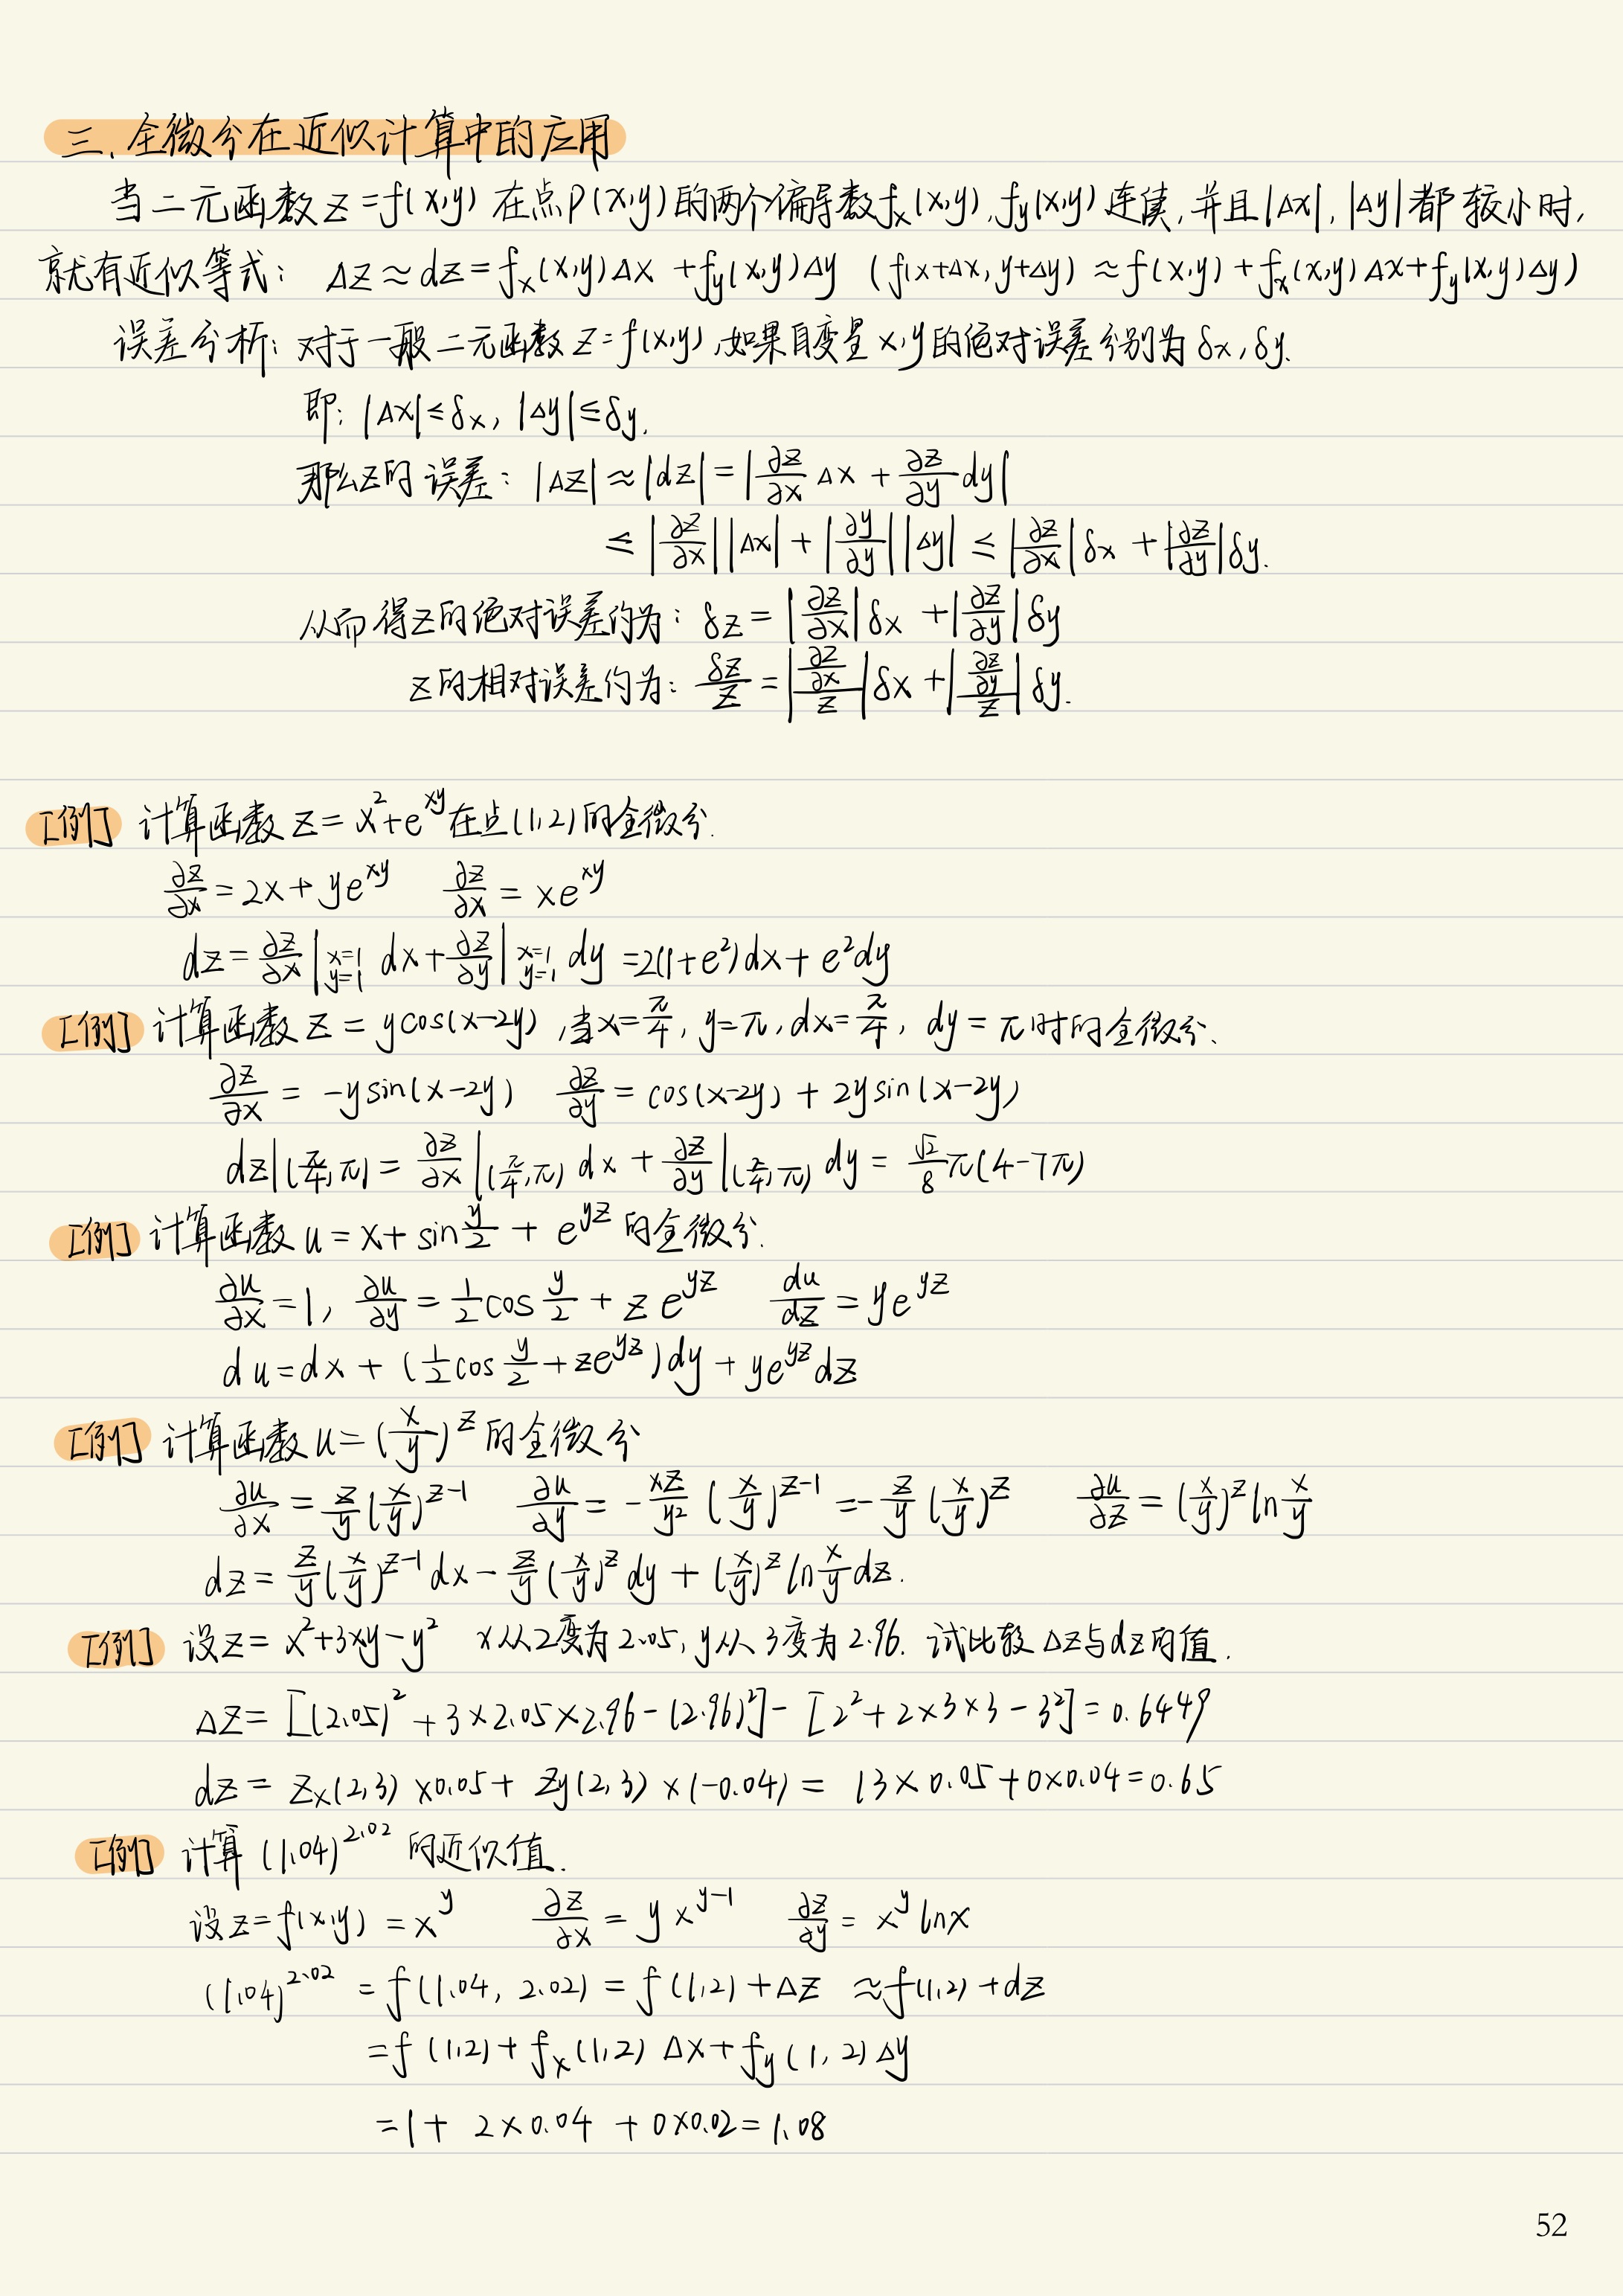 三、全微分在近似计算中的应用
当二元函数 z=f(x,y) 在点P(x,y)的两个偏导数f_x(x,y), f_y(x,y)连续,并且|Δx|, |Δy|都较小时,
就有近似等式: Δz≈dz=f_x(x,y)Δx+f_y(x,y)Δy (f(x+Δx, y+Δy)≈f(x,y)+f_x(x,y)Δx+f_y(x,y)Δy)
误差分析: 对于一般二元函数 z=f(x,y),如果自变量x,y的绝对误差分别为δx, δy.
即: |Δx|≤δx, |Δy|≤δy.
那么z的误差: |Δz|≈|dz|=|∂z/∂x Δx + ∂z/∂y dy|
≤|∂z/∂x||Δx|+|∂y/∂y||Δy|≤|∂z/∂x|δx+|∂z/∂y|δy.
从而得z的绝对误差约为: δz=|∂z/∂x|δx+|∂z/∂y|δy
z的相对误差约为: δz/z=|(∂z/∂x)/z|δx+|(∂z/∂y)/z|δy.
[例] 计算函数 z=x²+e^{xy}在点(1,2)的全微分.
∂z/∂x=2x+ye^{xy} ∂z/∂x=xe^{xy}
dz=∂z/∂x|_{x=1 y=1} dx+∂z/∂y|_{x=1 y=1} dy=2(1+e²)dx+e²dy
[例] 计算函数 z=ycos(x-2y),当x=π/4, y=π, dx=π/4, dy=π时的全微分.
∂z/∂x=-ysin(x-2y) ∂z/∂y=cos(x-2y)+2ysin(x-2y)
dz|(π/4,π)=∂z/∂x|(π/4,π) dx+∂z/∂y|(π/4,π) dy=√2/8 π(4-7π)
[例] 计算函数 u=x+sin y/2+e^{yz}的全微分.
∂u/∂x=1, ∂u/∂y=1/2 cos y/2+ze^{yz} du/dz=ye^{yz}
du=dx+(1/2 cos y/2+ze^{yz})dy+ye^{yz}dz
[例] 计算函数 u=(x/y)^z的全微分
∂u/∂x=z/y(x/y)^{z-1} ∂u/∂y=-xz/y²(x/y)^{z-1}=-z/y(x/y)^z ∂u/∂z=(x/y)^z ln x/y
dz=z/y(x/y)^{z-1}dx-z/y(x/y)^z dy+(x/y)^z ln x/y dz.
[例] 设z=x²+3xy-y² x从2变为2.05, y从3变为2.96. 试比较Δz与dz的值.
Δz=[(2.05)²+3×2.05×2.96-(2.96)²]-[2²+2×3×3-3²]=0.6449
dz=z_x(2,3)×0.05+z_y(2,3)×(-0.04)=13×0.05+0×0.04=0.65
[例] 计算(1.04)^{2.02}的近似值.
设z=f(x,y)=x^y ∂z/∂x=yx^{y-1} ∂z/∂y=x^y lnx
(1.04)^{2.02}=f(1.04, 2.02)=f(1,2)+Δz≈f(1,2)+dz
=f(1,2)+f_x(1,2)Δx+f_y(1,2)Δy
=1+2×0.04+0×0.02=1.08
52